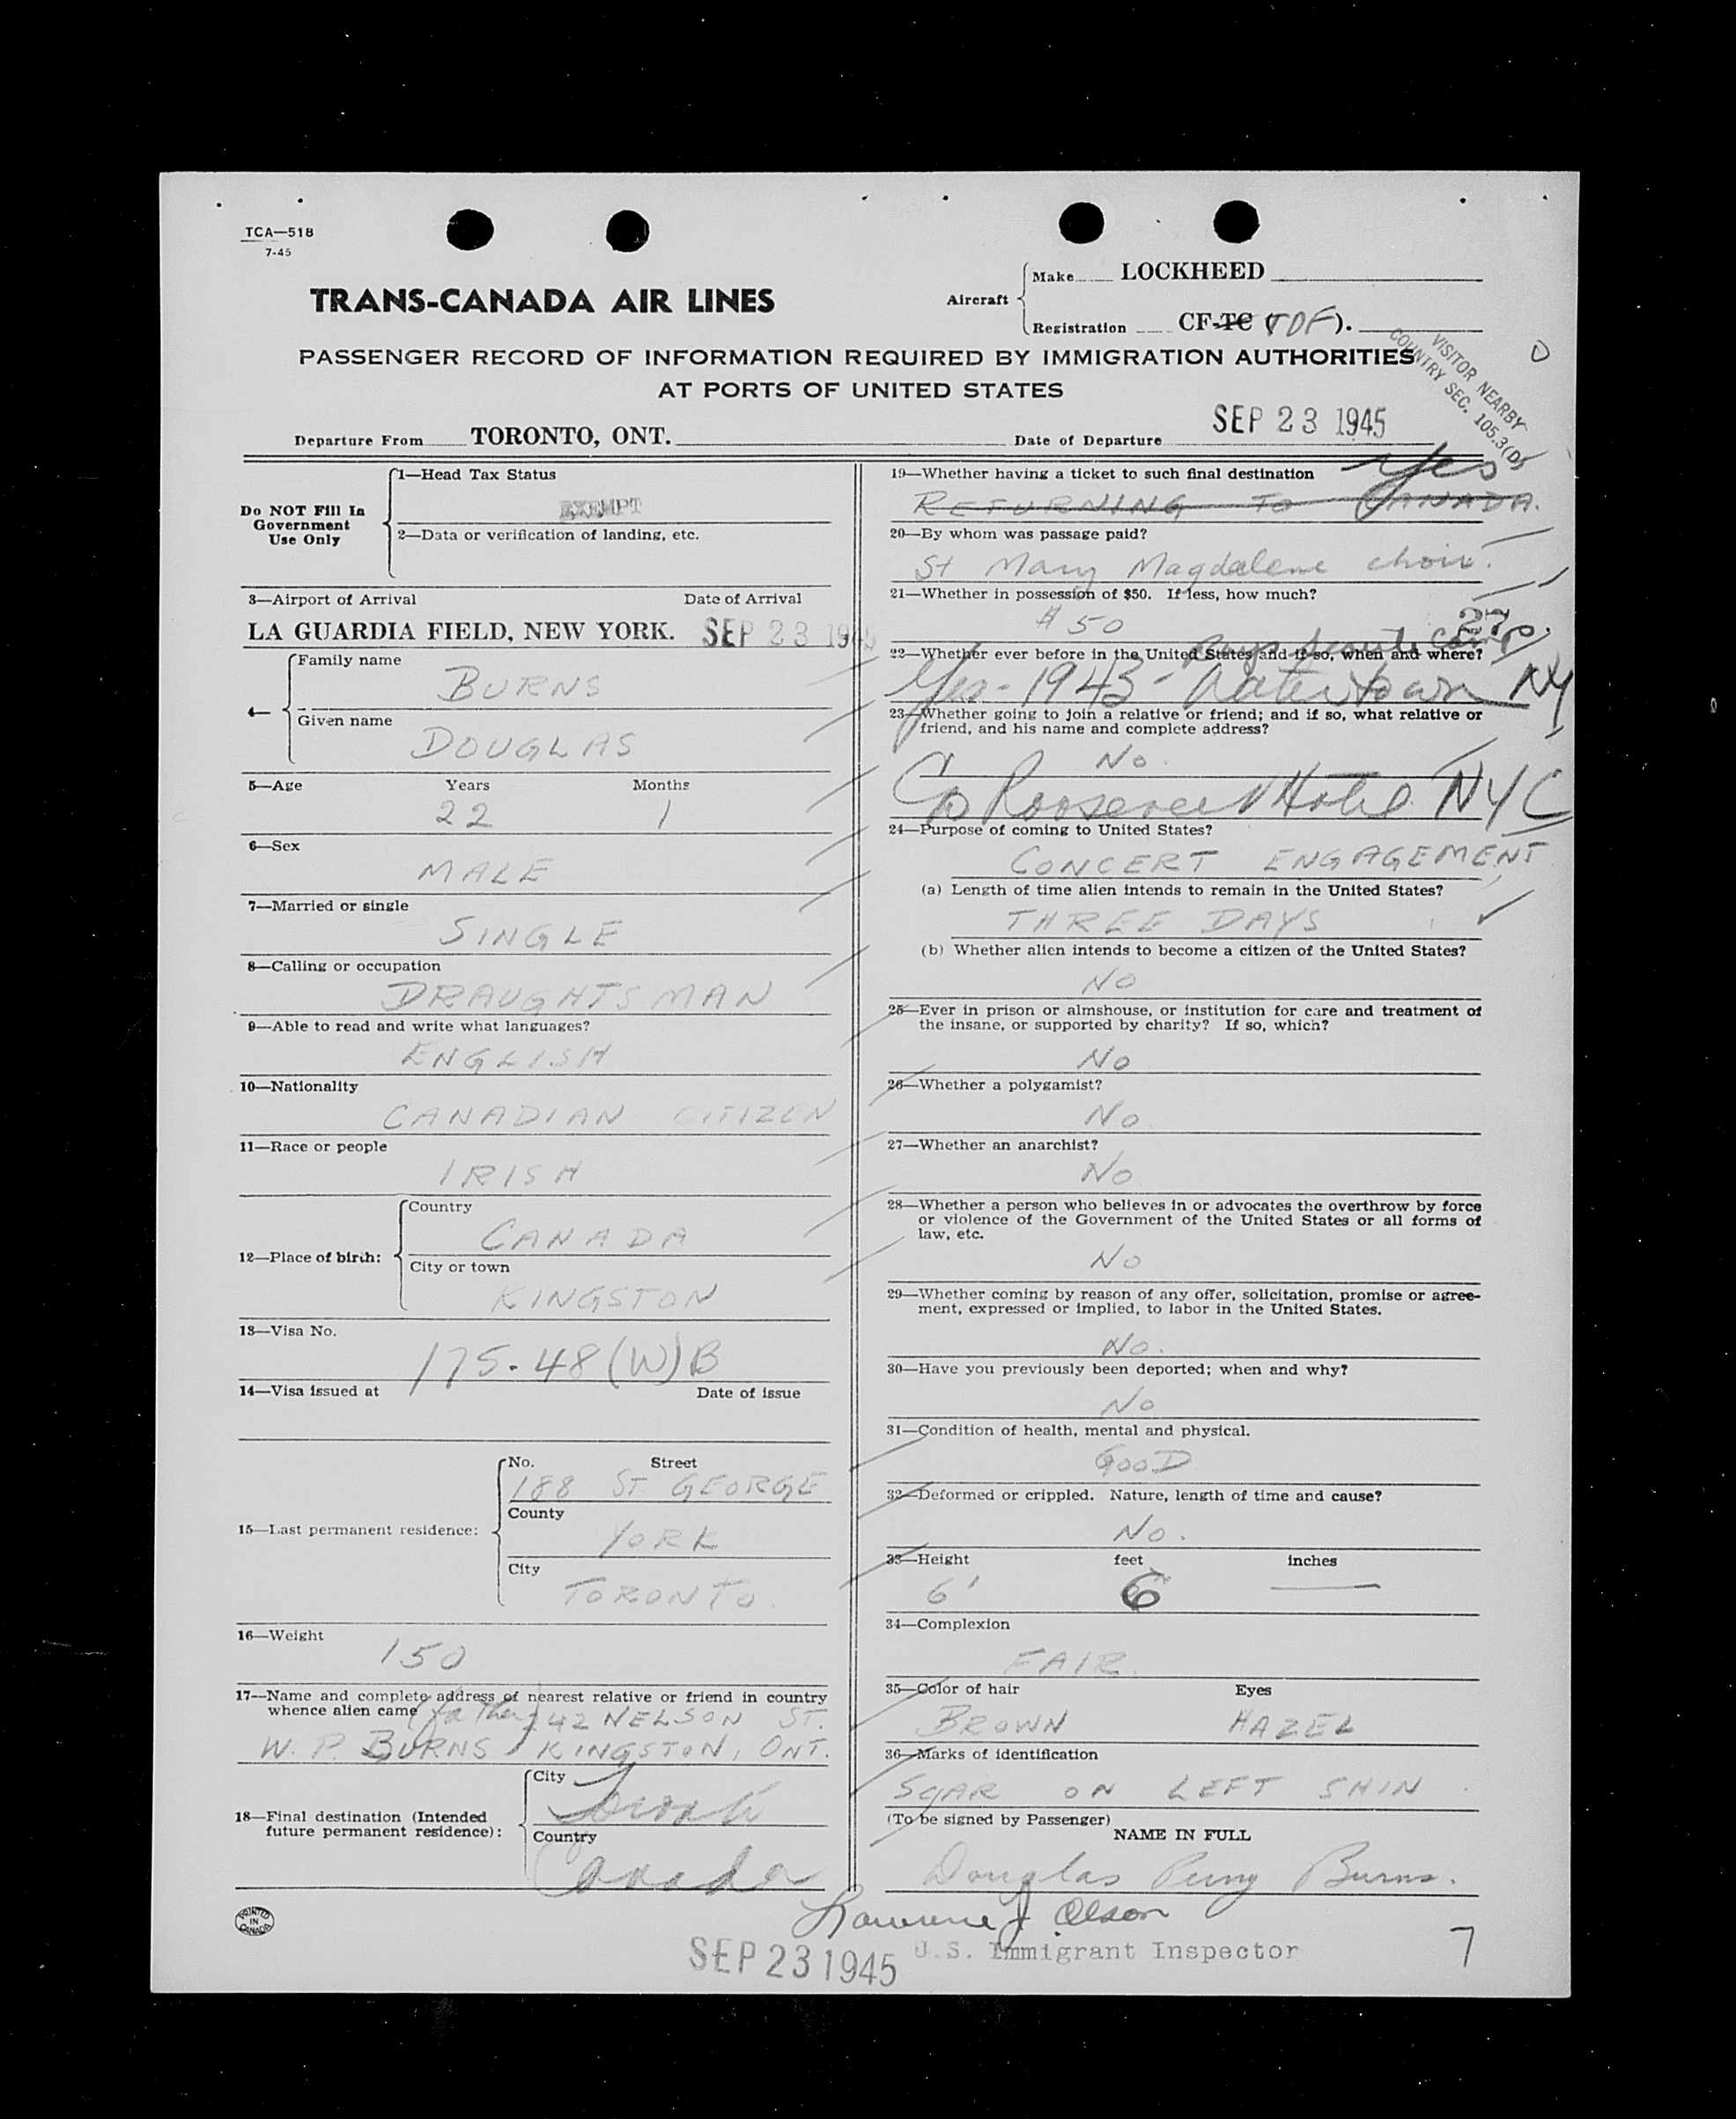 TCA—518
7-45
TRANS-CANADA AIR LINES
Aircraft
Make LOCKHEED
Registration CF-TC (TDF).
PASSENGER RECORD OF INFORMATION REQUIRED BY IMMIGRATION AUTHORITIES
AT PORTS OF UNITED STATES
VISITOR NEARBY
COUNTRY SEC. 105.3(D)
Departure From TORONTO, ONT.
Date of Departure SEP 23 1945
Do NOT Fill In
Government
Use Only
1—Head Tax Status
EXEMPT
2—Data or verification of landing, etc.
3—Airport of Arrival Date of Arrival
LA GUARDIA FIELD, NEW YORK. SEP 23 1945
4—
Family name
BURNS
Given name
DOUGLAS
5—Age Years Months
22 1
6—Sex
MALE
7—Married or single
SINGLE
8—Calling or occupation
DRAUGHTSMAN
9—Able to read and write what languages?
ENGLISH
10—Nationality
CANADIAN CITIZEN
11—Race or people
IRISH
12—Place of birth:
Country
CANADA
City or town
KINGSTON
13—Visa No.
175-48(W)B
14—Visa issued at Date of issue
15—Last permanent residence:
No. Street
188 ST GEORGE
County
YORK
City
TORONTO.
16—Weight
150
17—Name and complete address of nearest relative or friend in country
whence alien came (father) 42 NELSON ST.
W. P. BURNS, KINGSTON, ONT.
18—Final destination (Intended
future permanent residence):
City
Toronto
Country
Canada
PRINTED
IN
CANADA
19—Whether having a ticket to such final destination
Yes
RETURNING TO CANADA.
20—By whom was passage paid?
St Mary Magdalene choir.
21—Whether in possession of $50. If less, how much?
$50
27
Boys Scouts Camp
22—Whether ever before in the United States and if so, when and where?
Yes - 1943 - Watertown NY
23—Whether going to join a relative or friend; and if so, what relative or
friend, and his name and complete address?
No.
C/o Roosevelt Hotel NYC
24—Purpose of coming to United States?
CONCERT ENGAGEMENT
(a) Length of time alien intends to remain in the United States?
THREE DAYS
(b) Whether alien intends to become a citizen of the United States?
NO
25—Ever in prison or almshouse, or institution for care and treatment of
the insane, or supported by charity? If so, which?
No
26—Whether a polygamist?
No.
27—Whether an anarchist?
No
28—Whether a person who believes in or advocates the overthrow by force
or violence of the Government of the United States or all forms of
law, etc.
No
29—Whether coming by reason of any offer, solicitation, promise or agree-
ment, expressed or implied, to labor in the United States.
No.
30—Have you previously been deported; when and why?
No
31—Condition of health, mental and physical.
GOOD
32—Deformed or crippled. Nature, length of time and cause?
No.
33—Height feet inches
6' 6 —
34—Complexion
FAIR.
35—Color of hair Eyes
BROWN HAZEL
36—Marks of identification
SCAR ON LEFT SHIN
(To be signed by Passenger)
NAME IN FULL
Douglas Perry Burns.
Lawrence J Olson
U.S. Immigrant Inspector
SEP 23 1945
7